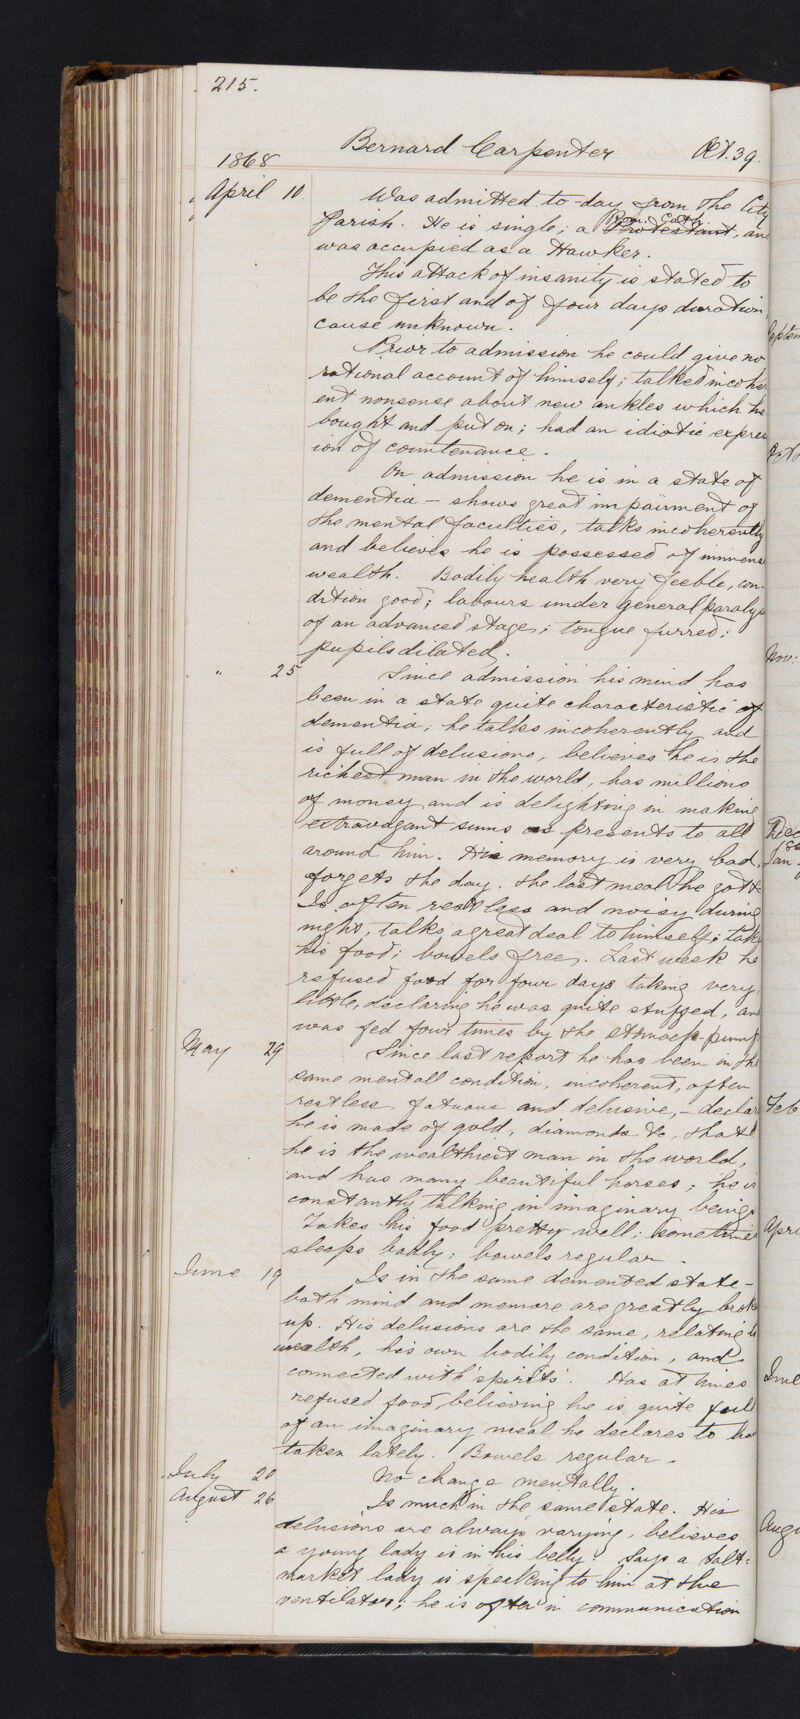 215.
Bernard Carpenter Æt. 39.
1868
April 10 Was admitted to-day from the City
Parish. He is single; a Rom. Cath. Protestant, and
was occupied as a Hawker.
This attack of insanity is stated to
be the first and of four days duration
cause unknown.
Prior to admission he could give no
rational account of himself; talked incoher
ent nonsense about new ankles which he
bought and put on; had an idiotic expres
ion of countenance.
On admission he is in a state of
dementia – shows great impairment of
the mental faculties, talks incoherently
and believes he is possessed of immense
wealth. Bodily health very feeble, con-
dition good; labours under general paralys
of an advanced stage; tongue furred;
pupils dilated.
" 25 Since admission his mind has
been in a state quite characteristic of
dementia; he talks incoherently and
is full of delusions, believes he is the
richest man in the world, has millions
of money and is delighting in making
extravagant sums as presents to all
around him. His memory is very bad,
forgets the day, the last meal he got &c
Is often restless and noisy during
night, talks a great deal to himself; takes
his food; bowels free. Last week he
refused food for four days taking very
little, declaring he was quite stuffed, and
was fed four times by the stomach-pump
May 29 Since last report he has been in the
same mentall condition, incoherent, often
restless, fatuous and delusive, – declar
he is made of gold, diamonds &c, that
he is the wealthiest man in the world,
and has many beautiful horses; he is
constantly talking in imaginary beings
Takes his food pretty well; sometimes
sleeps badly; bowels regular.
June 19 Is in the same demented state –
both mind and memore are greatly broke
up. His delusions are the same, relating to
wealth, his own bodily condition, and
connected with 'spirits'. Has at times
refused food believing he is quite full
of an imaginary meal he declares to hav
taken lately. Bowels regular.
July 20 No change mentally.
August 26 Is much in the same state. His
delusions are always varying, believes
a young lady is in his belly. Says a Salt-
market lady is speaking to him at the
ventilators; he is often in communication
Septem
Nov:
Dec
Jan.
Feb
Apri
June
Augu